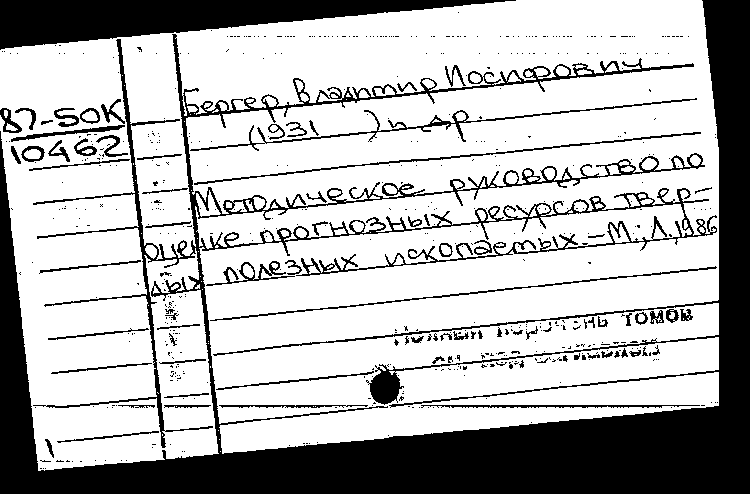 87-50К
10462
Бергер, Владимир Иосифович
(1931 ) и др.
Методическое руководство по
оценке прогнозных ресурсов твер-
дых полезных ископаемых. – М.; Л., 1986
Полный перечень томов
см. под заглавием